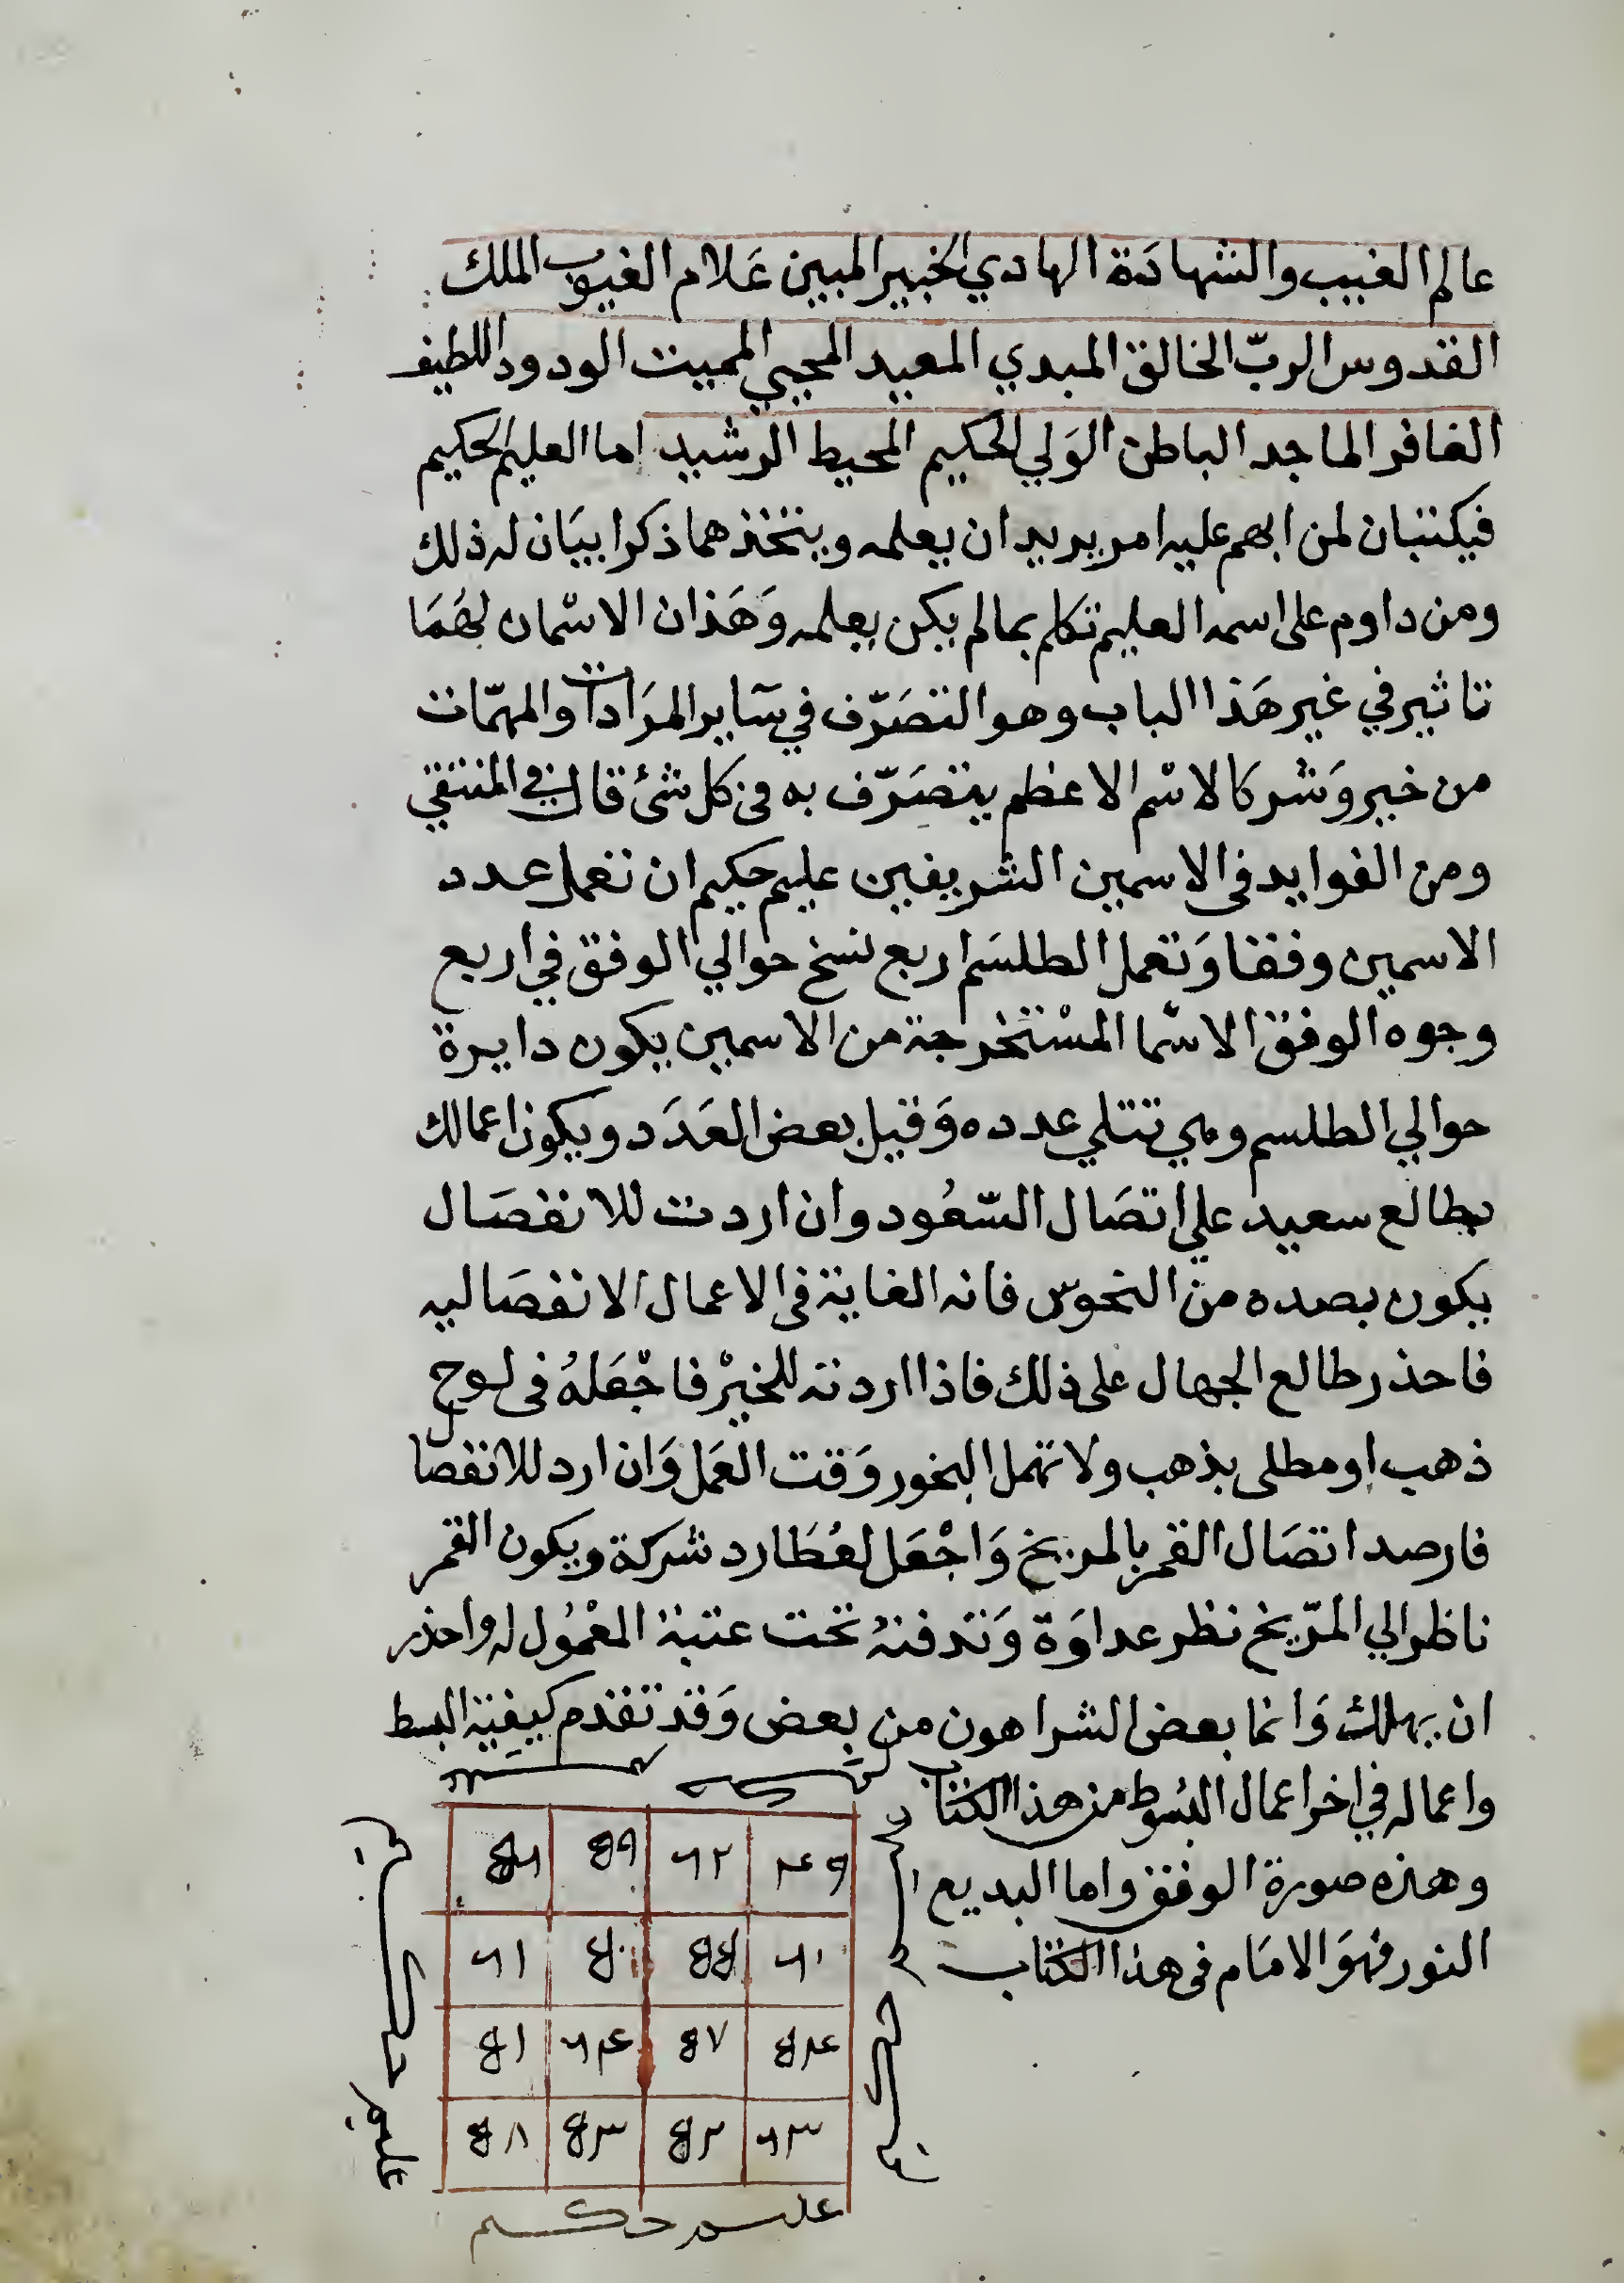 عالم الغيب والشهادة الهادي الخبير المبين علام الغيوب الملك
القدوس الربّ الخالق المبدي المعيد المحيي المميت الودود اللطيف
الغافر الماجد الباطن الوَلي الحكيم المحيط الرشيد اما العليم الحكيم
فيكتبان لمن ابهم عليه امر يريد ان يعلمه ويتخذهما ذكرا بيَان له ذلك
ومن داوم على اسمه العليم تكلم بما لم يكن يعلمه وَهَذان الاسْمان لهَمَا
تاثير في غير هَذا الباب وهو التصَرّف في سَاير المرَادات والمهمّات
من خير وَشر كالاسْم الاعظم يتصَرّف به فى كل شئ قال في المنتقي
ومن الفوايد فى الاسمين الشريفين عليم حكيم ان تعمل عدد
الاسمين وفقا وَتعمل الطلسَم اربع نسخ حوالي الوفق في اربع
وجوه الوفق الاسْما المسْتخرجة من الاسمين يكون دايرة
حوالي الطلسم وهي تتلي عدده وَقيل بعض العَدَد ويكون اعمالك
بطالع سعيد علي اتصَال السّعُود وان اردت للانفصَال
يكون بصده من النحوس فانه الغاية فى الاعمال الانفصَاليه
فاحذر طالع الجهال على ذلك فاذا اردته للخيْر فاجْعَلهُ فى لوح
ذهب او مطلى بذهب ولا تهمل البخور وَقت العَمل وَان ارد للانفصال
فارصد اتصَال القمر بالمريخ وَاجْعَل لعُطَارد شركة ويكون القمر
ناظر الي المرّيخ نظر عداوَة وَتدفنهُ تحت عتبة المعْمُول له واحذر
ان يهلك وَانما بعض الشر اهون من بعض وَقد تقدم كيفية البسط
واعماله في اخر اعمال البُسُوط من هذا الكتاب
وهذه صورة الوفق واما البديع
النور فهوَ الامَام فى هذا الكتاب
٤٩ ٦٢ ٥٩ ٥٦
٦٠ ٥٥ ٥٠ ٦١
٥٤ ٥٧ ٦٤ ٥١
٦٣ ٥٢ ٥٣ ٥٨
عليم حكيم
عليم حكيم